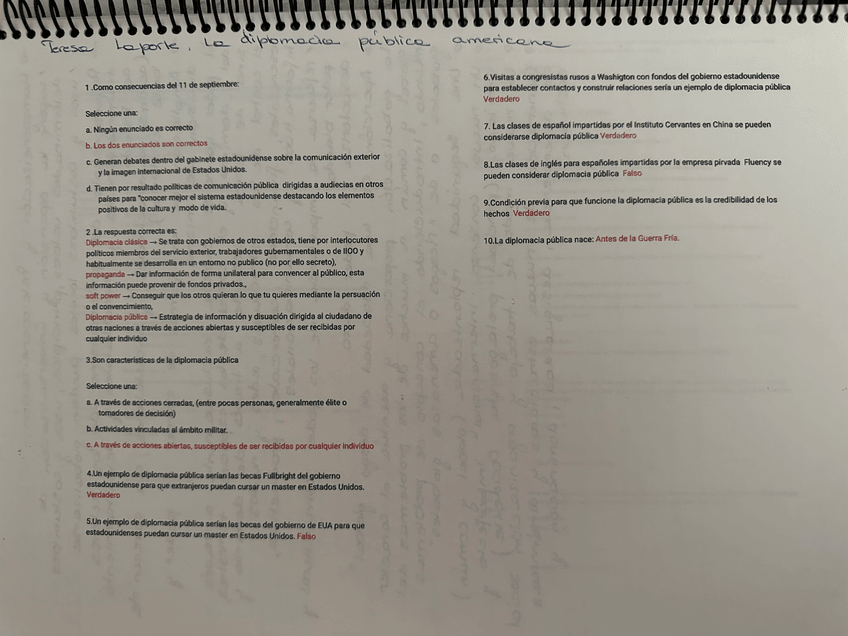 Teresa Laporte, La diplomacia pública americana
1 .Como consecuencias del 11 de septiembre:
Seleccione una:
a. Ningún enunciado es correcto
b. Los dos enunciados son correctos
c. Generan debates dentro del gabinete estadounidense sobre la comunicación exterior
y la imagen internacional de Estados Unidos.
d. Tienen por resultado políticas de comunicación pública dirigidas a audiecias en otros
países para "conocer mejor el sistema estadounidense destacando los elementos
positivos de la cultura y modo de vida.
2 .La respuesta correcta es:
Diplomacia clásica → Se trata con gobiernos de otros estados, tiene por interlocutores
políticos miembros del servicio exterior, trabajadores gubernamentales o de IIOO y
habitualmente se desarrolla en un entorno no publico (no por ello secreto),
propaganda → Dar información de forma unilateral para convencer al público, esta
información puede provenir de fondos privados.,
soft power → Conseguir que los otros quieran lo que tu quieres mediante la persuación
o el convencimiento,
Diplomacia pública → Estrategia de información y disuación dirigida al ciudadano de
otras naciones a través de acciones abiertas y susceptibles de ser recibidas por
cualquier individuo
3.Son características de la diplomacia pública
Seleccione una:
a. A través de acciones cerradas, (entre pocas personas, generalmente élite o
tomadores de decisión)
b. Actividades vinculadas al ámbito militar.
c. A través de acciones abiertas, susceptibles de ser recibidas por cualquier individuo
4.Un ejemplo de diplomacia pública serían las becas Fullbright del gobierno
estadounidense para que extranjeros puedan cursar un master en Estados Unidos.
Verdadero
5.Un ejemplo de diplomacia pública serían las becas del gobierno de EUA para que
estadounidenses puedan cursar un master en Estados Unidos. Falso
6.Visitas a congresistas rusos a Washigton con fondos del gobierno estadounidense
para establecer contactos y construir relaciones sería un ejemplo de diplomacia pública
Verdadero
7. Las clases de español impartidas por el Instituto Cervantes en China se pueden
considerarse diplomacia pública Verdadero
8.Las clases de inglés para españoles impartidas por la empresa pirvada Fluency se
pueden considerar diplomacia pública Falso
9.Condición previa para que funcione la diplomacia pública es la credibilidad de los
hechos Verdadero
10.La diplomacia pública nace: Antes de la Guerra Fría.